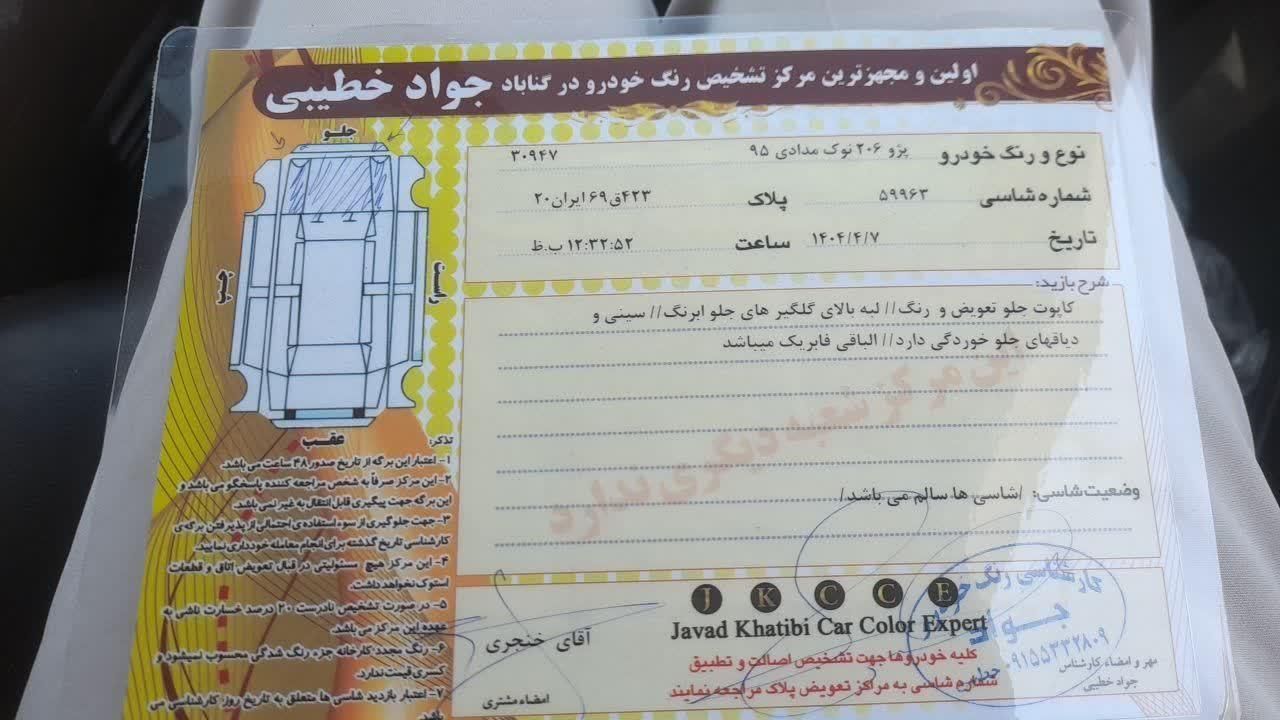 اولین و مجهزترین مرکز تشخیص رنگ خودرو در گناباد جواد خطیبی
نوع و رنگ خودرو پژو ۲۰۶ نوک مدادی ۹۵ ۳۰۹۴۷
شماره شاسی ۵۹۹۶۳ پلاک ۴۲۳ق۶۹ ایران۲۰
تاریخ ۱۴۰۴/۴/۷ ساعت ۱۲:۳۲:۵۲ ب.ظ
شرح بازید:
کاپوت جلو تعویض و رنگ// لبه بالای گلگیر های جلو ابرنگ// سینی و
دیاقهای جلو خوردگی دارد// الباقی فابریک میباشد
این مرکز شعبه دیگری ندارد
وضعیت شاسی: /شاسی ها سالم می باشد/
جلو
چپ
راست
عقب
تذکر:
۱- اعتبار این برگه از تاریخ صدور ۴۸ ساعت می باشد.
۲- این مرکز صرفاً به شخص مراجعه کننده پاسخگو می باشد و
این برگه جهت پیگیری قابل انتقال به غیر نمی باشد.
۳- جهت جلوگیری از سوء استفاده ی احتمالی از پذیرفتن برگه ی
کارشناسی تاریخ گذشته برای انجام معامله خودداری نمایید.
۴- این مرکز هیچ مسئولیتی در قبال تعویض اتاق و قطعات
استوک نخواهد داشت.
۵- در صورت تشخیص نادرست ۲۰ درصد خسارت ناشی به
عهده این مرکز می باشد.
۶- رنگ مجدد کارخانه جزء رنگ شدگی محسوب نمیشود و
کسری قیمت ندارد.
۷- اعتبار بازدید شاسی ها متعلق به تاریخ روز کارشناسی می
باشد.
J K C C E
Javad Khatibi Car Color Expert
کلیه خودروها جهت تشخیص اصالت و تطبیق
شماره شاسی به مراکز تعویض پلاک مراجعه نمایند
آقای خنجری
امضاء مشتری
کارشناسی رنگ خودرو
جواد
خطیبی
۰۹۱۵۵۳۳۲۸۰۹
مهر و امضاء کارشناس
جواد خطیبی